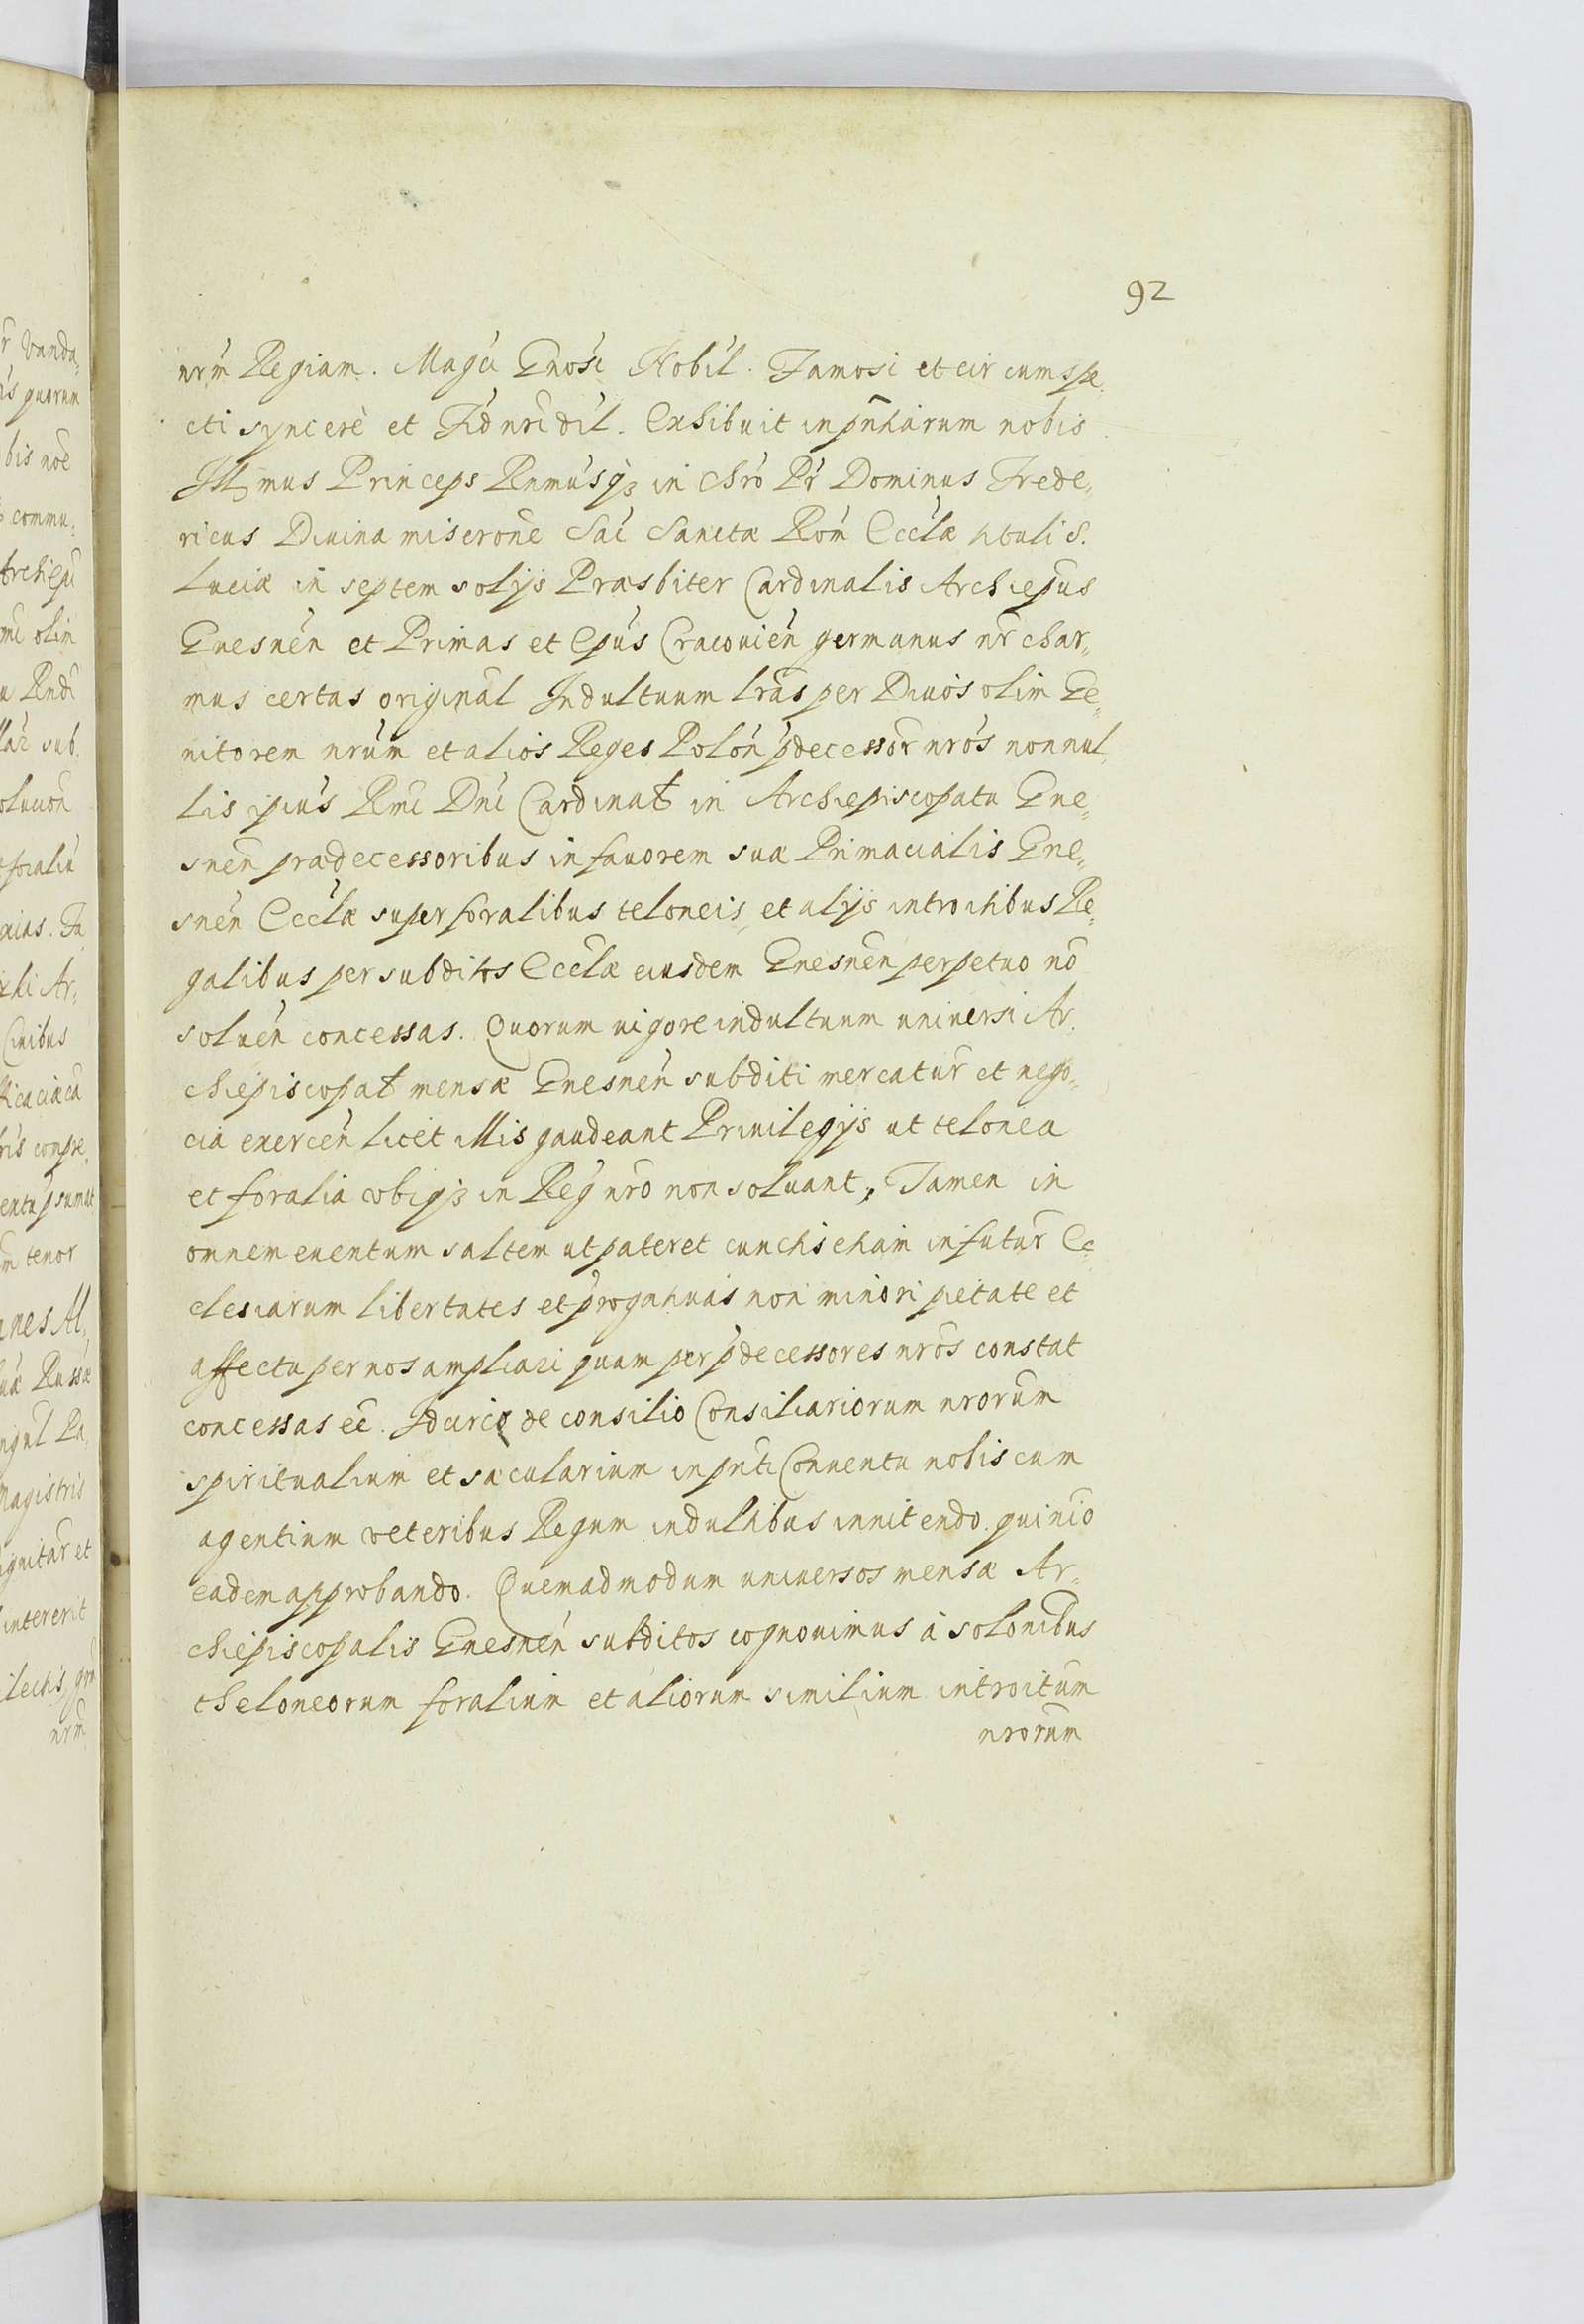 92
nrm̃ Regiam. Magci Gnosi Nobil. Famosi et circumspe,
cti syncerè et Fid nri dil. Exhibuit in pñtiarum nobis
Illmus Princeps Rnmusqȝ in Chro Pr Dominus Frede,,
ricus Diuina miserone Sac Sanctæ Rom Ecclæ tituli S.
Luciæ in septem solijs Præsbiter Cardinalis Archiepus
Gnesnen et Primas et Epus Cracouien germanus nr char,,
mus certas original Indultuum lras per Diuos olim Ge,,
nitorem nrum et alios Reges Polon p̃decessor nros nonnul,,
lis ipius Rmi Dni Cardinał in Archiepiscopatu Gne,,
snen prædecessoribus in fauorem suæ Primacialis Gne,,
snen Ecclæ super foralibus teloneis, et alijs introitibus Re,,
galibus per subditos Ecclæ eiusdem Gnesnen perpetuo nõ
soluen concessas. Quorum uigore indultuum uniuersi Ar,
chiepiscopał mensæ Gnesnen subditi mercatur et nego,,
cia exercen licet illis gaudeant Priuilegijs ut telonea
et foralia vbiqȝ in Reg nro non soluant, Tamen in
omnem euentum saltem ut pateret cunctis etiam in futur Ec,
clesiarum libertates et p̃rogatiuas non minori pietate et
affectu per nos ampliari quam per p̃decessores nros constat
concessas ee. Idcirco de consilio Consiliariorum nrorum
spiritualium et sæcularium in pñti Conuentu nobiscum
agentium veteribus Regum indultibus innitendo. quinio
eadem approbando. Quemadmodum uniuersos mensæ Ar,,
chiepiscopalis Gnesnen subditos cognouimus à solonibus
theloneorum foralium et aliorum similium introitum
nrorum